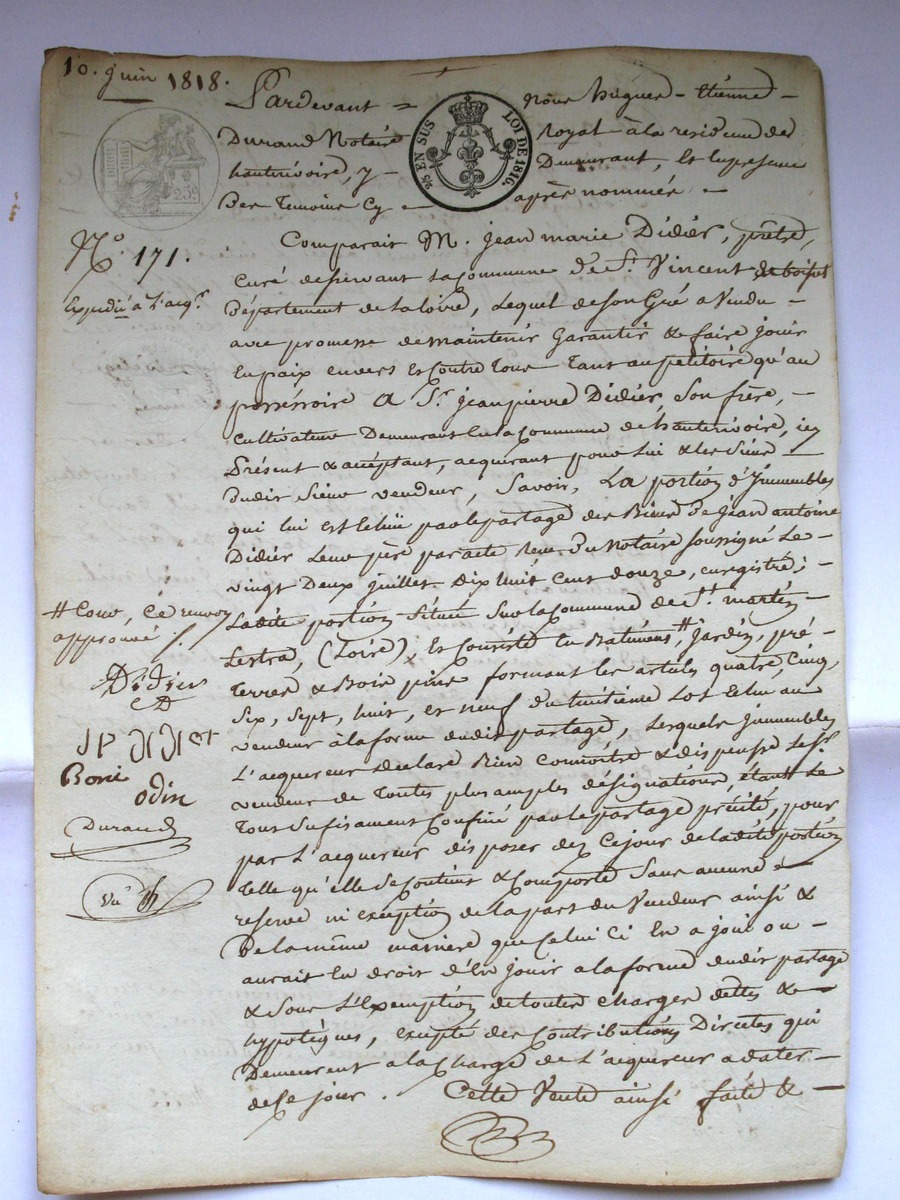 10. juin 1818.
Pardevant = nous hugues - étienne -
Durand Notaire royal à la residence de
hauterivoire, y - Demeurant, Et En presence
Des Temoins Cy - après nommés -
EN SUS LOI DE 1816.
N.o 171.
Expedié à l'acq.r
Comparait M. jean marie Didier, prêtre,
curé desservant la commune de S.t Vincent de boiset
Département de la loire, Lequel de son Gré a Vendu -
avec promesse de maintenir Garantir & faire jouir
En paix envers Et contre Tous Tant au petitoire qu'au
possessoire a S.r jean pierre Didier, Son frère, -
Cultivateur Demeurant En la Commune de hauterivoire, icy
Présent & acceptant, acquerant pour Lui & les Siens -
dudit Sieur vendeur, Savoir, La portion d'Immeubles
qui lui est Echüe par le partage des Biens de jean antoine
Didier Leur père par acte Reçu Du Notaire soussigné Le -
vingt Deux juillet Dix huit Cent douze, enregistré; -
Ladite portion Située Sur la Commune de S.t martin
Lestra, (Loire), Et Consiste En Batimens, # jardin, pré -
Terres & Bois pins formant les articles quatre, Cinq,
Six, Sept, huit, et neuf du huitieme Lot Echu au
vendeur à la forme dudit partage, Lesquels Immeubles
L'acquereur declare Bien Connoitre & dispense Le S.r
vendeur de Toutes plus amples désignations, étant Le
Tout Sufisament Confiné par le partage précité, pour
par L'acquereur disposer dez Ce jour de ladite portion
Telle qu'elle Se Contient & Comporte Sans aucune -
reserve ni exception de la part du Vendeur ainsi &
De la même maniere que Celui Ci En a joui ou -
aurait Eu droit d'En jouir a la forme dudit partage
& Sous L'Exemption de toutes Charges dettes & -
hypotèques, excepté des Contributions Directes qui
Demeurent a la Charge de L'acquereur a dater -
de Ce jour. Cette Vente ainsi faite & -
# Cour, Ce renvoy
approuvé
Didier
Boni
odin
Durand
Vu